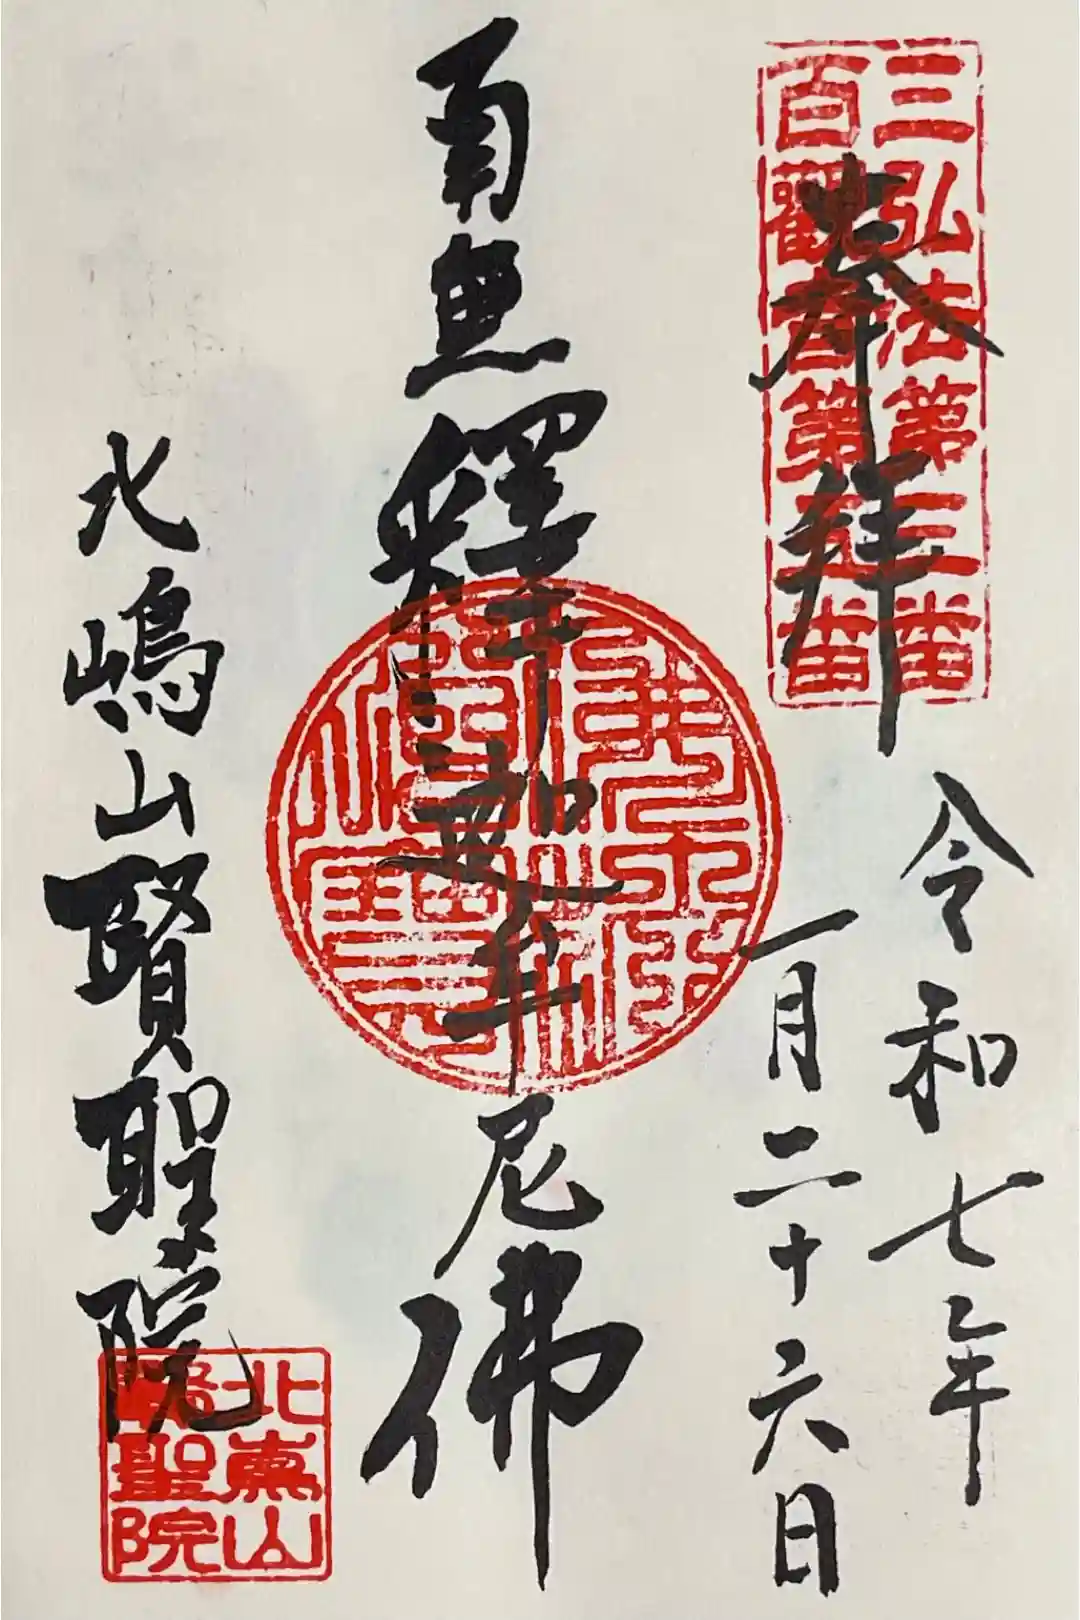 奉拝
三弘法第三番
百觀音第三番
令和七年
一月二十六日
南無釋迦牟尼佛
佛法僧寶
北嶋山賢聖院
北嶌山
賢聖院